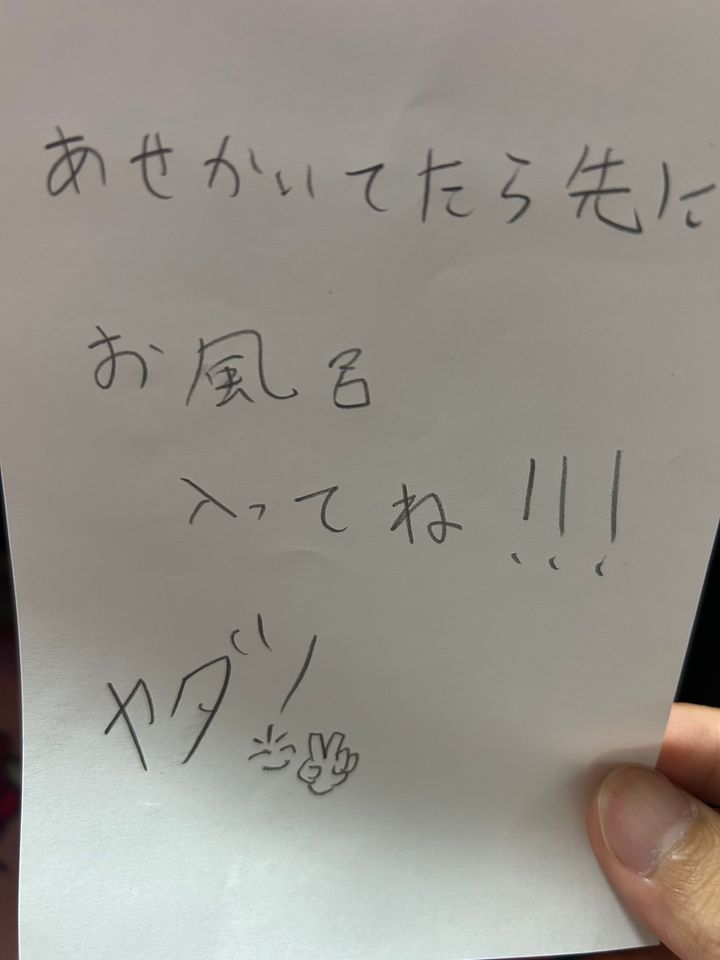 あせかいてたら先に
お風呂
入ってね!!!
ヤダソ